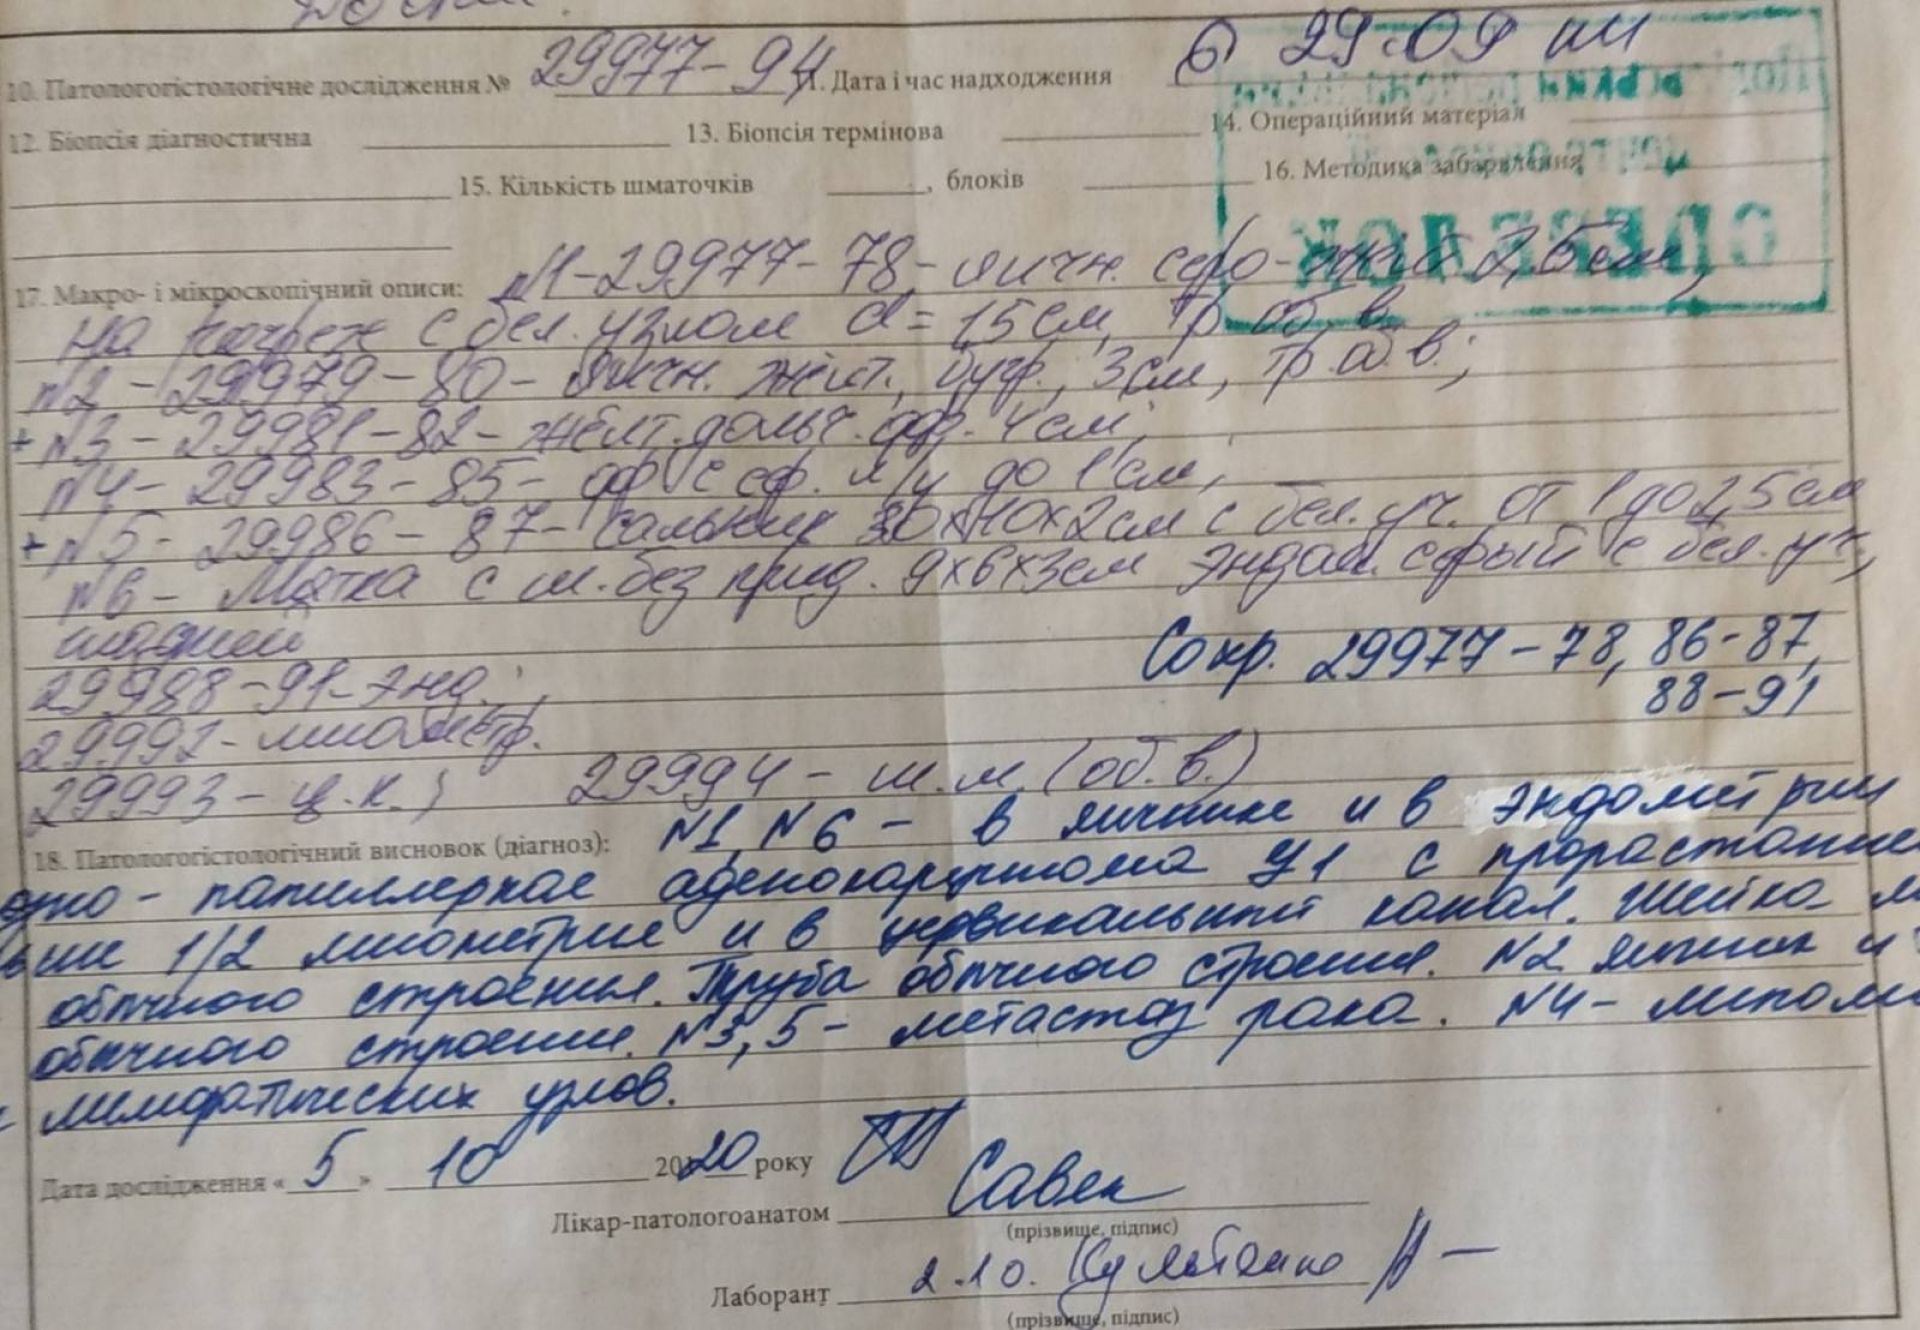 10. Патологогістологічне дослідження № 29977-94 11. Дата і час надходження 6) 29.09
12. Біопсія діагностична 13. Біопсія термінова 14. Операційний матеріал
15. Кількість шматочків , блоків 16. Методика забарвлення
ОДРЕЗОК
17. Макро- і мікроскопічний описи: N1-29977-78- яичн. серо-желт 2,5см,
на разрез с бел. узлом d=1,5 см, тр. об. в.
N2-29979-80- яичн. желт., бугр., 3см, тр. об. в.;
+ N3-29981-82- желт. дольч. 4см;
N4-29983-85- с ср. л/у до 1 см,
+ N5-29986-87- сальник 30х10х2см с бел. уч. от 1 до 2,5см
N6- Матка с ш. без прид. 9х6х3см эндом. серый с бел. уч,
гладкий
29988-91-энд.;
Сохр. 29977-78, 86-87,
88-91
29992- миометр.
29993-ц.к.; 29994-ш.м. (об. в.)
18. Патологогістологічний висновок (діагноз): N1, N6 - в яичнике и в эндометрии
- папиллярная аденокарцинома G1 с прорастание
1/2 миометрия и в цервикальный канал. Шейка м
обычного строения. Труба обычного строения. N2 яичник и
обычного строения. N3,5- метастаз рака. N4- липом
лимфатических узлов.
Дата дослідження « 5 » 10 2020 року
Лікар-патологоанатом Савен
(прізвище, підпис)
Лаборант 2.10.
(прізвище, підпис)